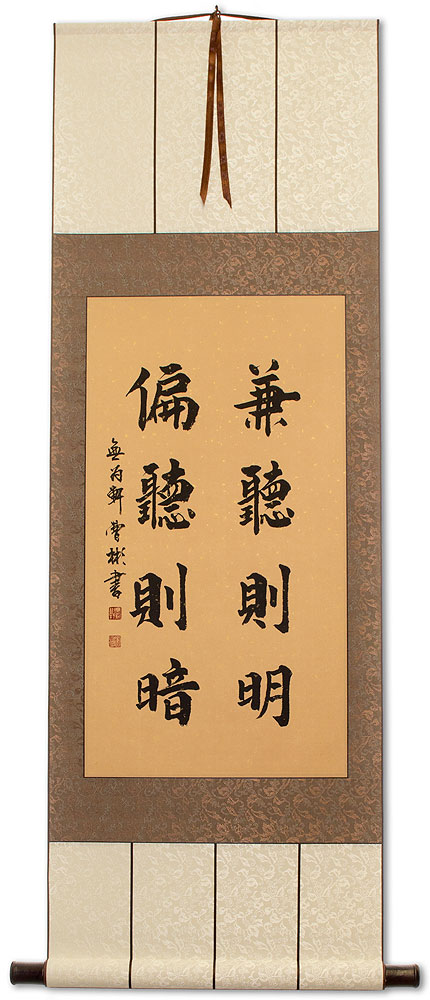 兼聽則明
偏聽則暗
無為軒 曹彬書